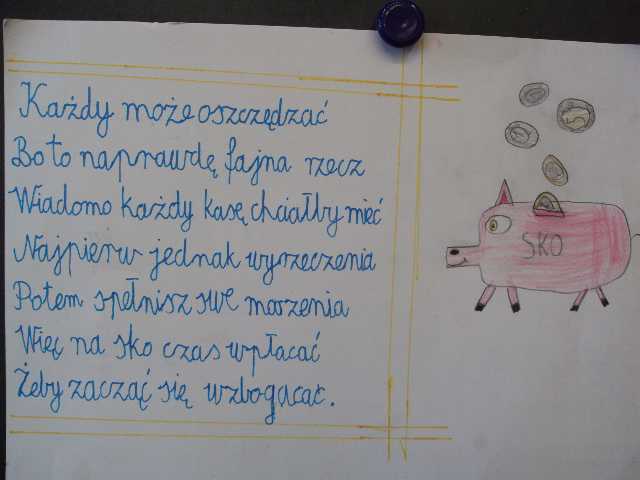 Każdy może oszczędzać
Bo to naprawdę fajna rzecz
Wiadomo każdy kasę chciałby mieć
Najpierw jednak wyrzeczenia
Potem spełnisz swe marzenia
Więc na sko czas wpłacać
Żeby zacząć się wzbogacać.
SKO